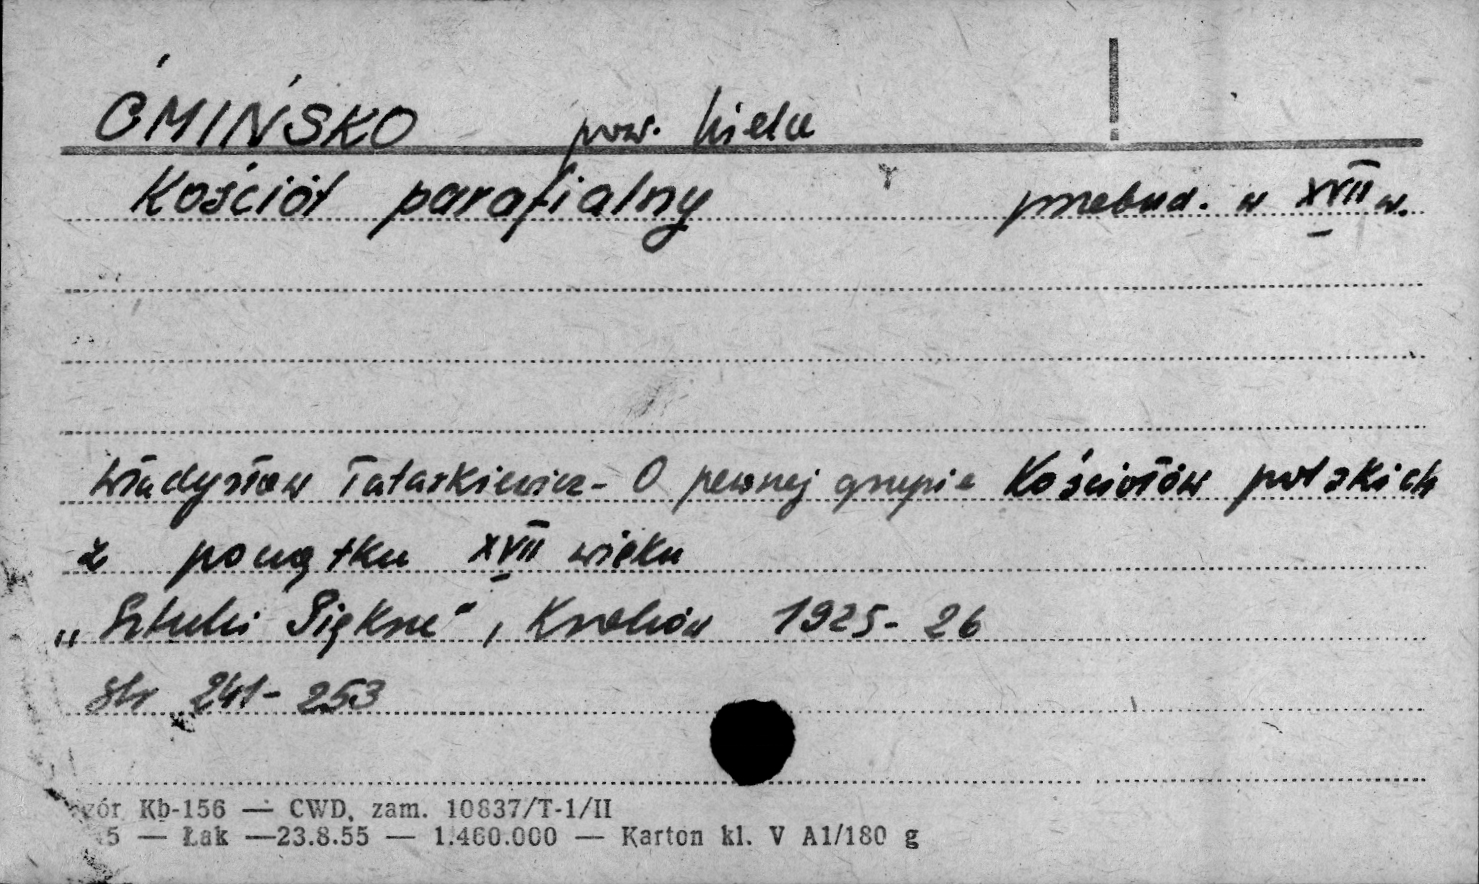 ĆMIŃSKO pow. Kielce
Kościół parafialny przebud. w XVII w.
Władysław Tatarkiewicz - O pewnej grupie Kościołów polskich
z początku XVII wieku
„Sztuki Piękne", Kraków 1925-26
str 241-253
zór Kb-156 — CWD, zam. 10837/T-1/II
5 — Łak —23.8.55 — 1.460.000 — Karton kl. V A1/180 g